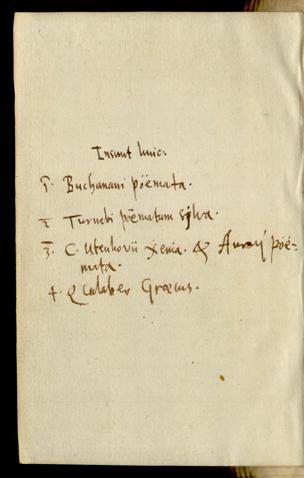 Insunt huic:
1. Buchanani poëmata.
2 Turnebi poëmatum sylva.
3. C. Utenhovii Xenia. & Auratj poë-
mata.
4. Q Calaber Græcus.